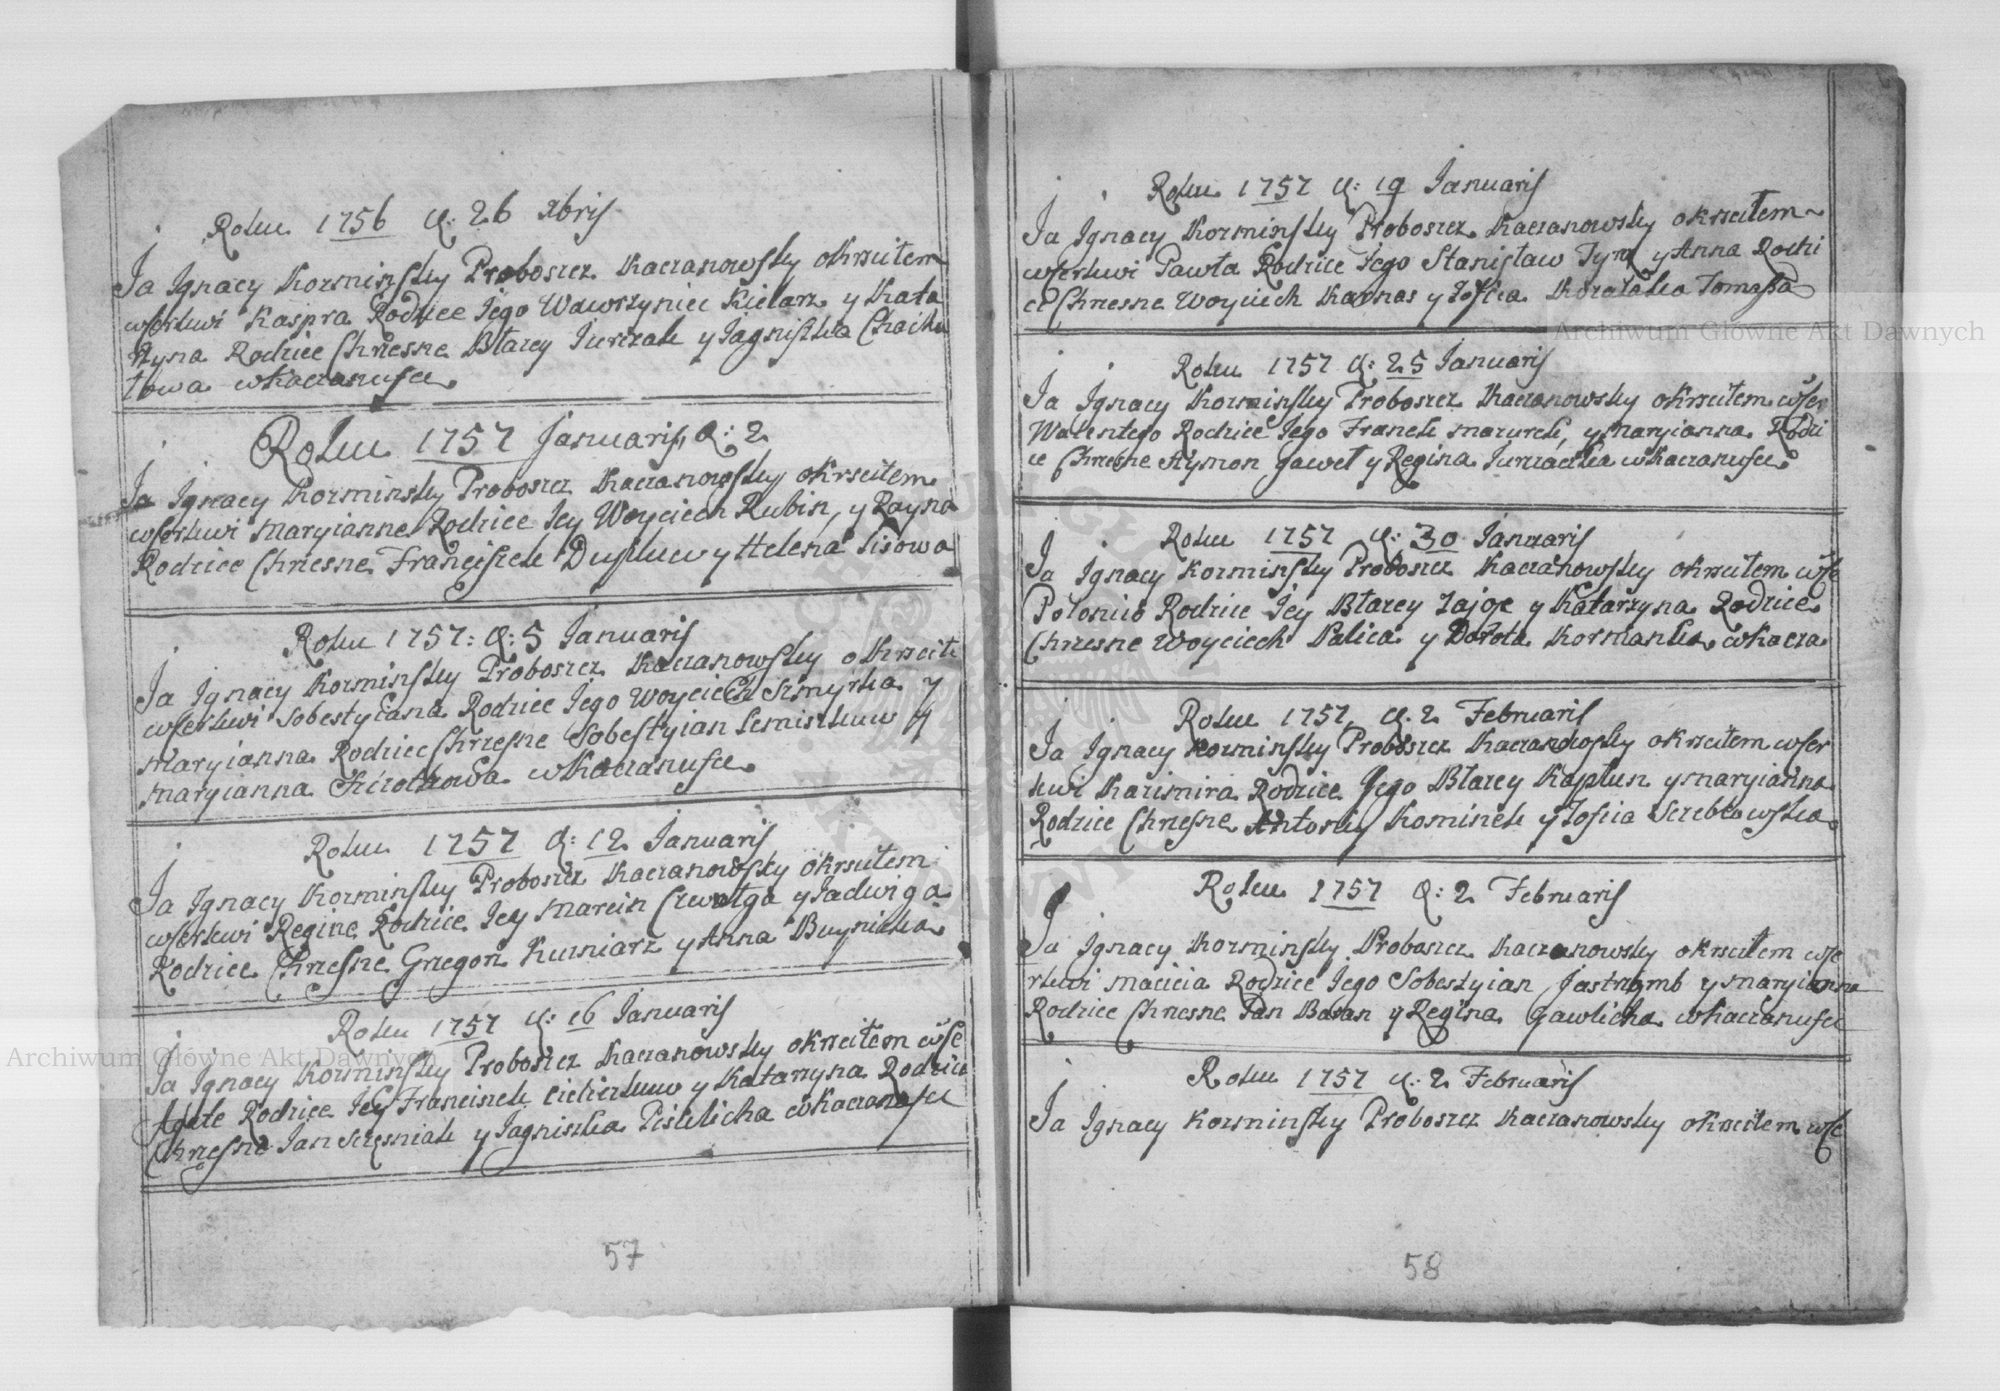 Roku 1756 d: 26 xbris
Ja Ignacy Kozminsky Proboszcz Kaczanowsky okrzciłem
wferkwi Kaspra Rodzice Jego Wawrzyniec Kielarz y Kata
rzyna Rodzice Chrzesne Błazey Jurczak y Jagniszka Chaiku
towa wKaczanufce
Roku 1757 Januaris, d: 2
Ja Ignacy Kozminsky Proboszcz Kaczanowsky okrzciłem
wferkwi Maryianne Rodzice Jey Woyciech Rubin, y Rayna
Rodzice Chrzesne Franciszek Duszkuw y Helena Lisowa
Roku 1757: d: 5 Januaris
Ja Ignacy Kozminsky Proboszcz Kaczanowsky okrzcił
wferkwi Sobestyiana Rodzice Jego Woyciech Szmyrka y
Maryianna Rodzice Chrzesne Sobestyian Semiszkuw y
Maryianna wKaczanufce
Roku 1757 d: 12 Januaris
Ja Ignacy Kozminsky Proboszcz Kaczanowsky okrzciłem
wferkwi Regine Rodzice Jey Marcin y Jadwiga
Rodzice Chrzesne Grzegorz Kusniarz y Anna Buyniaka
Roku 1757 d: 16 Januaris
Ja Ignacy Kozminsky Proboszcz Kaczanowsky okrzciłem wfe
Agate Rodzice Jey Franciszek y Katarzyna Rodzice
Chrzesne Jan Szczesniak y Jagniszka Pisklicha wKaczanufce
57
Roku 1757 d: 19 Januaris
Ja Ignacy Kozminsky Proboszcz Kaczanowsky okrzciłem
wferkwi Pawła Rodzice Jego Stanisław Tyra y Anna Rodzi
ce Chrzesne Woyciech Karnas y Zofiia Kozaczka Tomasza
Roku 1757 d: 25 Januaris
Ja Ignacy Kozminsky Proboszcz Kaczanowsky okrzciłem wfer
Walentego Rodzice Jego Franek Mazurek, y Maryianna Rodzi
ce Chrzesne Szymon Gaweł y Regina Jurczaczka wKaczanufce
Roku 1757 d: 30 Januaris
Ja Ignacy Kozminsky Proboszcz Kaczanowsky okrzciłem wfe
Poloniio Rodzice Jey Błazey Zajoc y Katarzyna Rodzice
Chrzesne Woyciech Palica y Dorota Kormanka wKacza
Roku 1757 d. 2 Februaris
Ja Ignacy Kozminsky Proboszcz Kaczanowsky okrzciłem wfer
kwi Kazimira Rodzice Jego Błazey Kapłun y Maryianna
Rodzice Chrzesne Antoniy Kominek y Zofiia Szczebłowska
Roku 1757 d: 2 Februaris
Ja Ignacy Kozminsky Proboszcz Kaczanowsky okrzciłem wfe
rkwi Macieia Rodzice Jego Sobestyian Jastrzomb y Maryianna
Rodzice Chrzesne Jan Baran y Regina Gawlicha wKaczanufce
Roku 1757 d: 2 Februaris
Ja Ignacy Kozminsky Proboszcz Kaczanowsky okrzciłem wfe
58
Archiwum Główne Akt Dawnych
Archiwum Główne Akt Dawnych